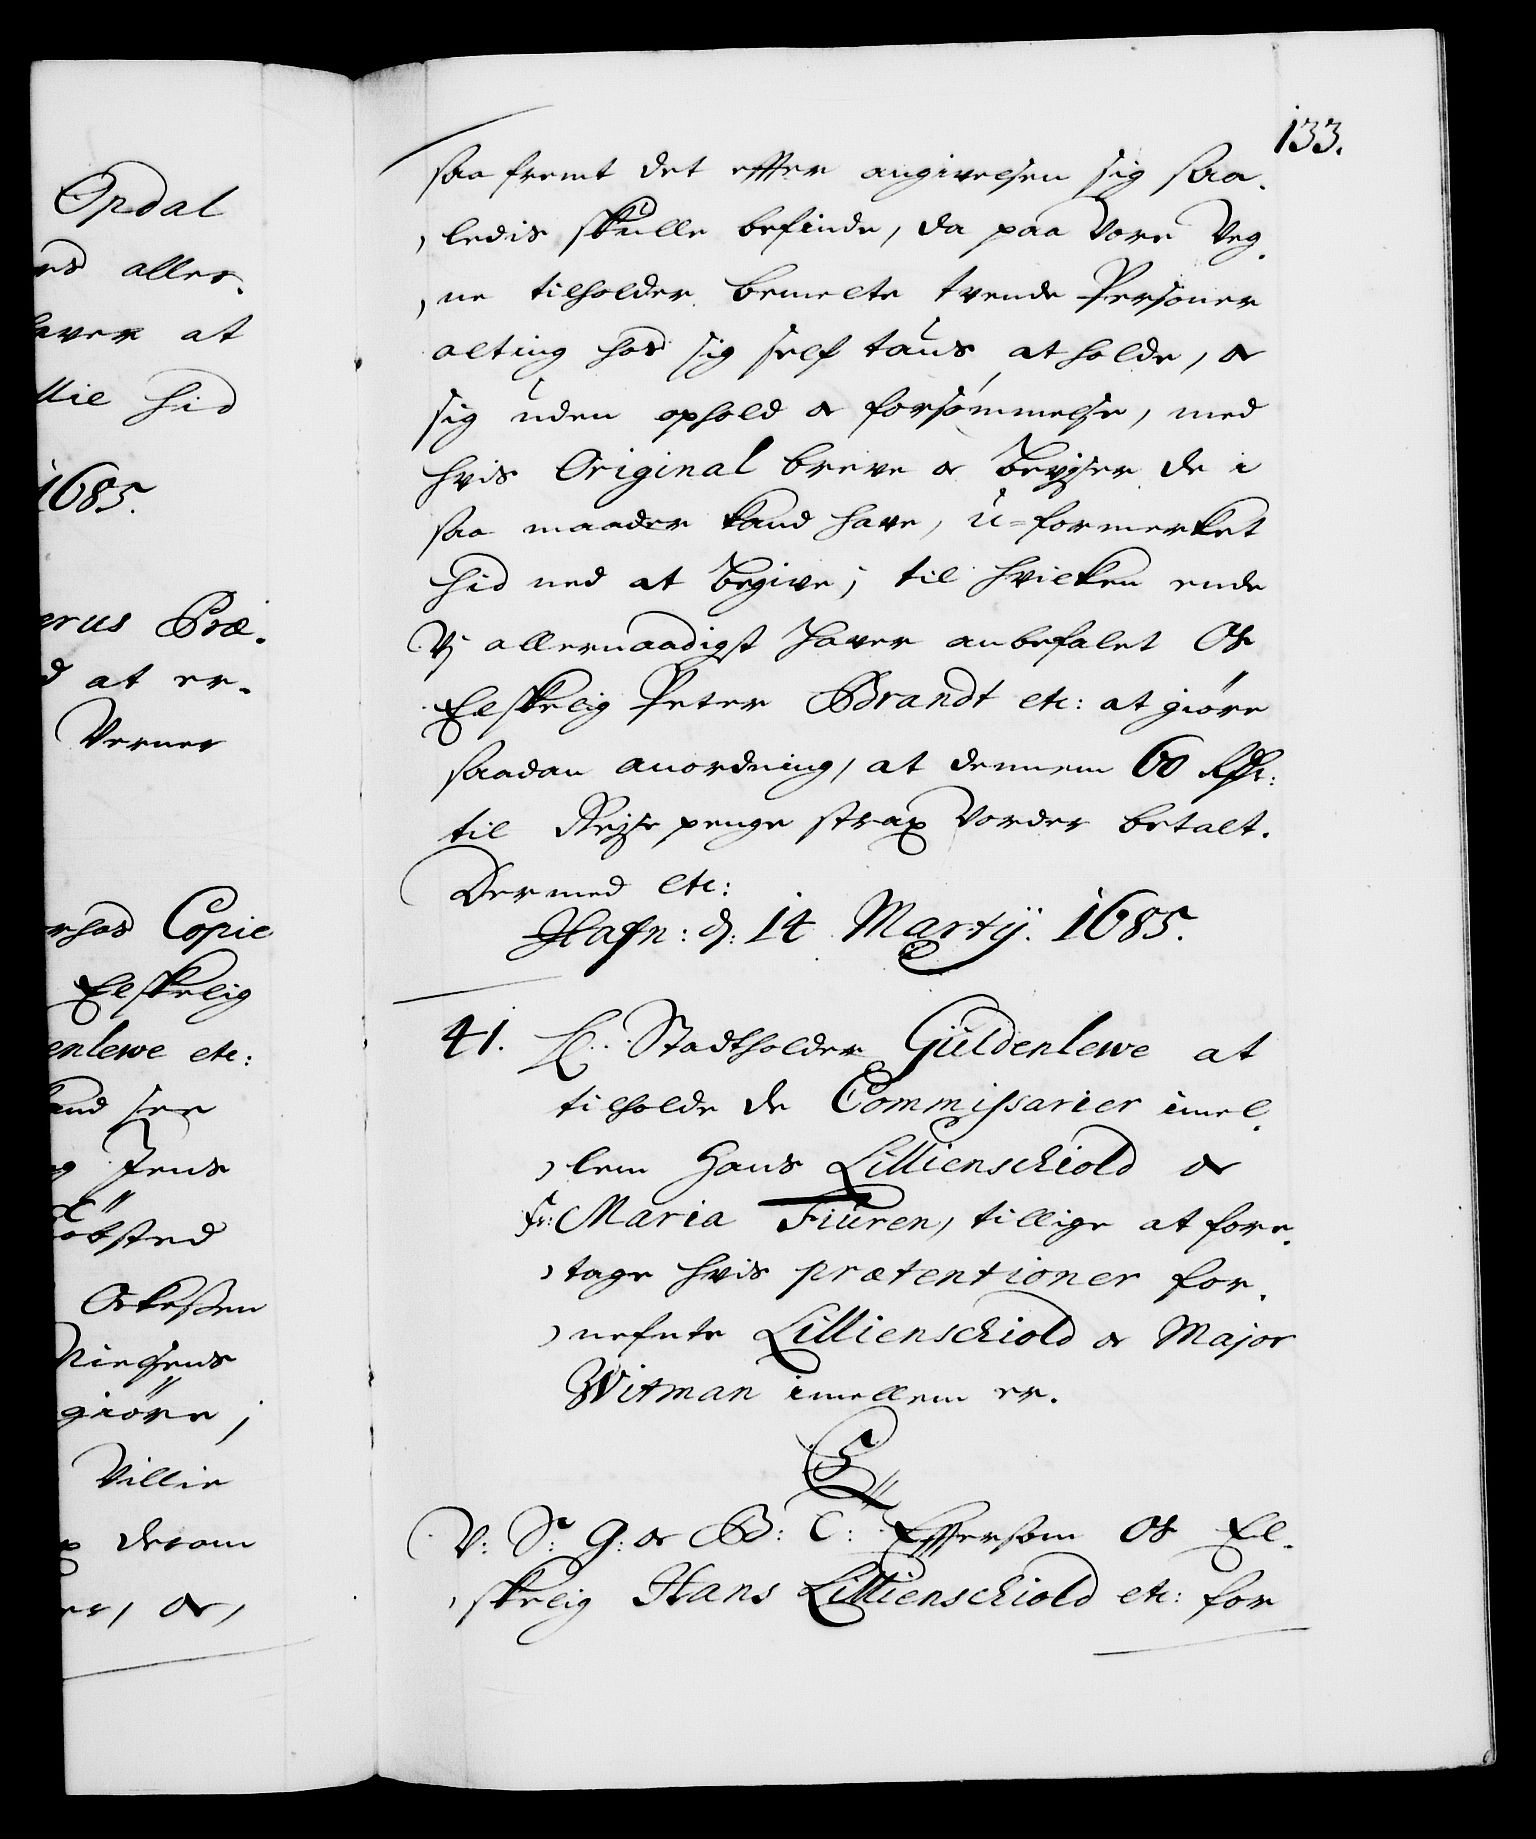 Opdal
es aller-
haver at
Mie hid
1685.
erus Præ-
d at er-
Verner
rhos Copie
Elskelig
enlewe etc:
kand see
og Jens
kiöbsted
Ockeßen
Nielsens
giöre;
Villie
derom
er, oc,
133.
saa fremt det effter angivelsen sig saa-
ledis skulle befinde, da paa Vore Veg-
ne tilholder bemelte tvende Personer
alting hos sig self taus at holde, oc
sig uden ophold oc forsømmelse, med
hvis Original breve oc Bevjser de i
saa maader kand have, u=formerket
hid ned at Begive; til hvilken ende
Vj allernaadigst haver anbefalet Os
Elskelig Peter Brandt etc: at giöre
saadan anordning, at dennem 60 Rdr:
til Rejse penge strax Vorder betalt.
Dermed etc:
Hafn: d: 14 Martij. 1685.
41. L.. Stadtholder Güldenlewe at
tilholde de Commissarier imel-
lem Hans Lillienschiold oc
Fr: Maria Fiuren, tillige at fore-
tage hvis prætentioner for-
nefnte Lillienschiold oc Major
Witman imellem er.
C5
V: S: G: oc B: C: Effersom Os El-
skelig Hans Lillienschiold etc: for